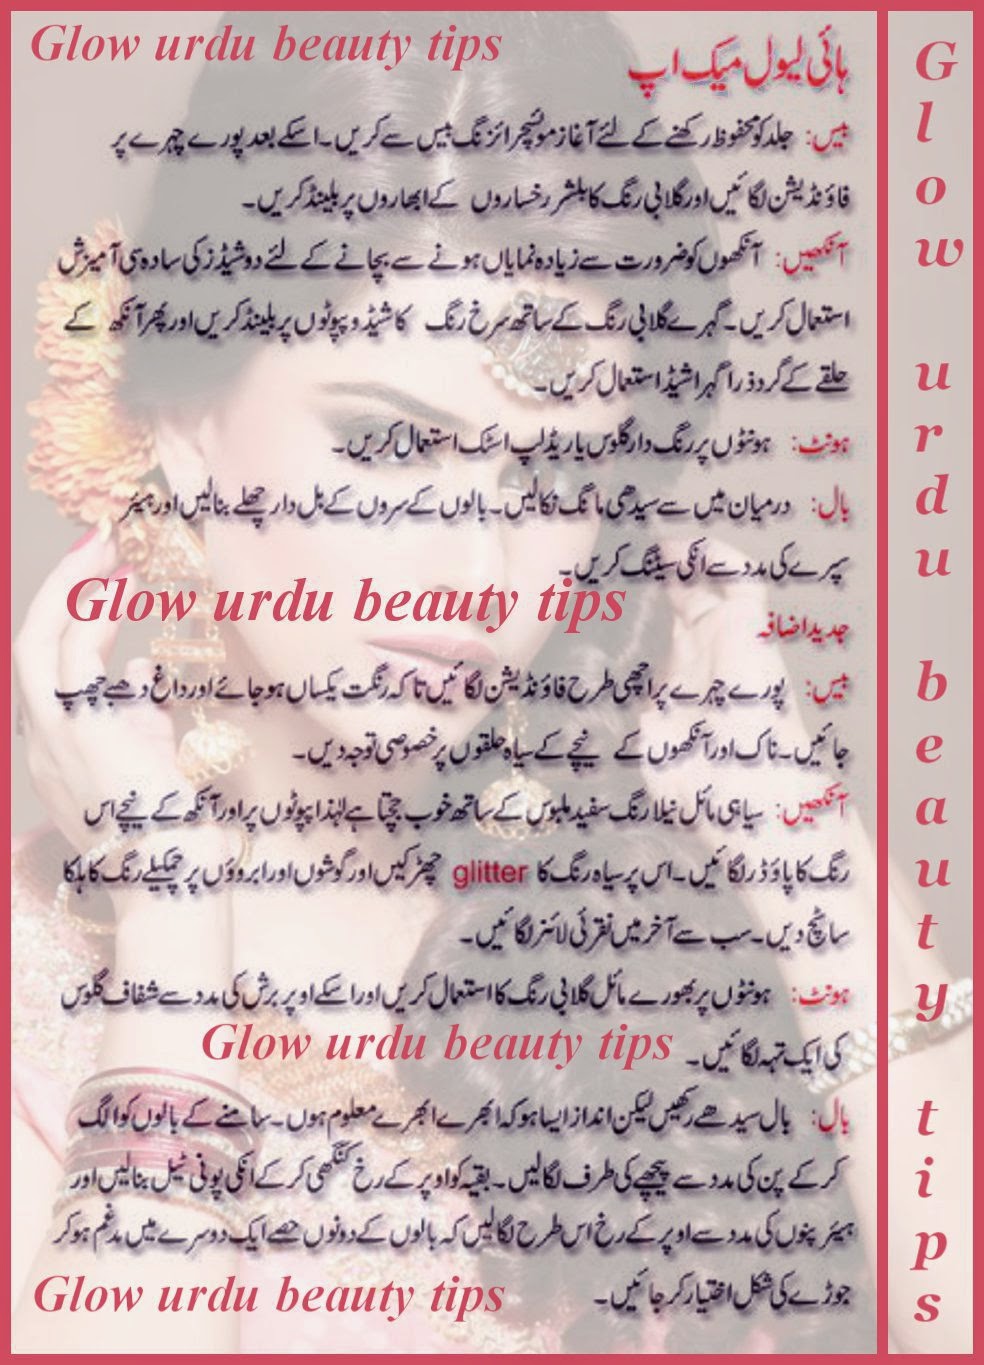 Glow urdu beauty tips
ہائی لیول میک اپ
بیس: جلد کو محفوظ رکھنے کے لئے آغاز موئسچرائزنگ بیس سے کریں۔ اسکے بعد پورے چہرے پر
فاؤنڈیشن لگائیں اور گلابی رنگ کا بلشر رخساروں کے ابھاروں پر بلینڈ کریں۔
آنکھیں: آنکھوں کو ضرورت سے زیادہ نمایاں ہونے سے بچانے کے لئے دو شیڈز کی سادہ سی آمیزش
استعمال کریں۔ گہرے گلابی رنگ کے ساتھ سرخ رنگ کا شیڈ و پپوٹوں پر بلینڈ کریں اور پھر آنکھ کے
حلقے کے گرد ذرا گہرا شیڈ استعمال کریں۔
ہونٹ: ہونٹوں پر رنگ دار گلوس یا ریڈ لپ اسٹک استعمال کریں۔
بال: درمیان میں سے سیدھی مانگ نکالیں۔ بالوں کے سروں کے بل دار چھلے بنالیں اور ہیئر
سپرے کی مدد سے انکی سیٹنگ کریں۔
Glow urdu beauty tips
جدید اضافہ
بیس: پورے چہرے پر اچھی طرح فاؤنڈیشن لگائیں تاکہ رنگت یکساں ہو جائے اور داغ دھبے چھپ
جائیں۔ ناک اور آنکھوں کے نیچے کے سیاہ حلقوں پر خصوصی توجہ دیں۔
آنکھیں: سیاہی مائل نیلا رنگ سفید ملبوس کے ساتھ خوب جچتا ہے لہٰذا پپوٹوں پر اور آنکھ کے نیچے اس
رنگ کا پاؤڈر لگائیں۔ اس پر سیاہ رنگ کا glitter چھڑکیں اور گوشوں اور ابروؤں پر چمکیلے رنگ کا ہلکا
سا ٹچ دیں۔ سب سے آخر میں نقرئی لائنر لگائیں۔
ہونٹ: ہونٹوں پر بھورے مائل گلابی رنگ کا استعمال کریں اور اسکے اوپر برش کی مدد سے شفاف گلوس
کی ایک تہہ لگائیں۔
Glow urdu beauty tips
بال: بال سیدھے رکھیں لیکن انداز ایسا ہو کہ ابھرے ابھرے معلوم ہوں۔ سامنے کے بالوں کو الگ
کر کے پن کی مدد سے پیچھے کی طرف لگالیں۔ بقیہ کو اوپر کے رخ کنگھی کر کے انکی پونی ٹیل بنالیں اور
ہیئر پنوں کی مدد سے اوپر کے رخ اس طرح لگالیں کہ بالوں کے دونوں حصے ایک دوسرے میں مدغم ہو کر
جوڑے کی شکل اختیار کر جائیں۔
Glow urdu beauty tips
Glow urdu beauty tips